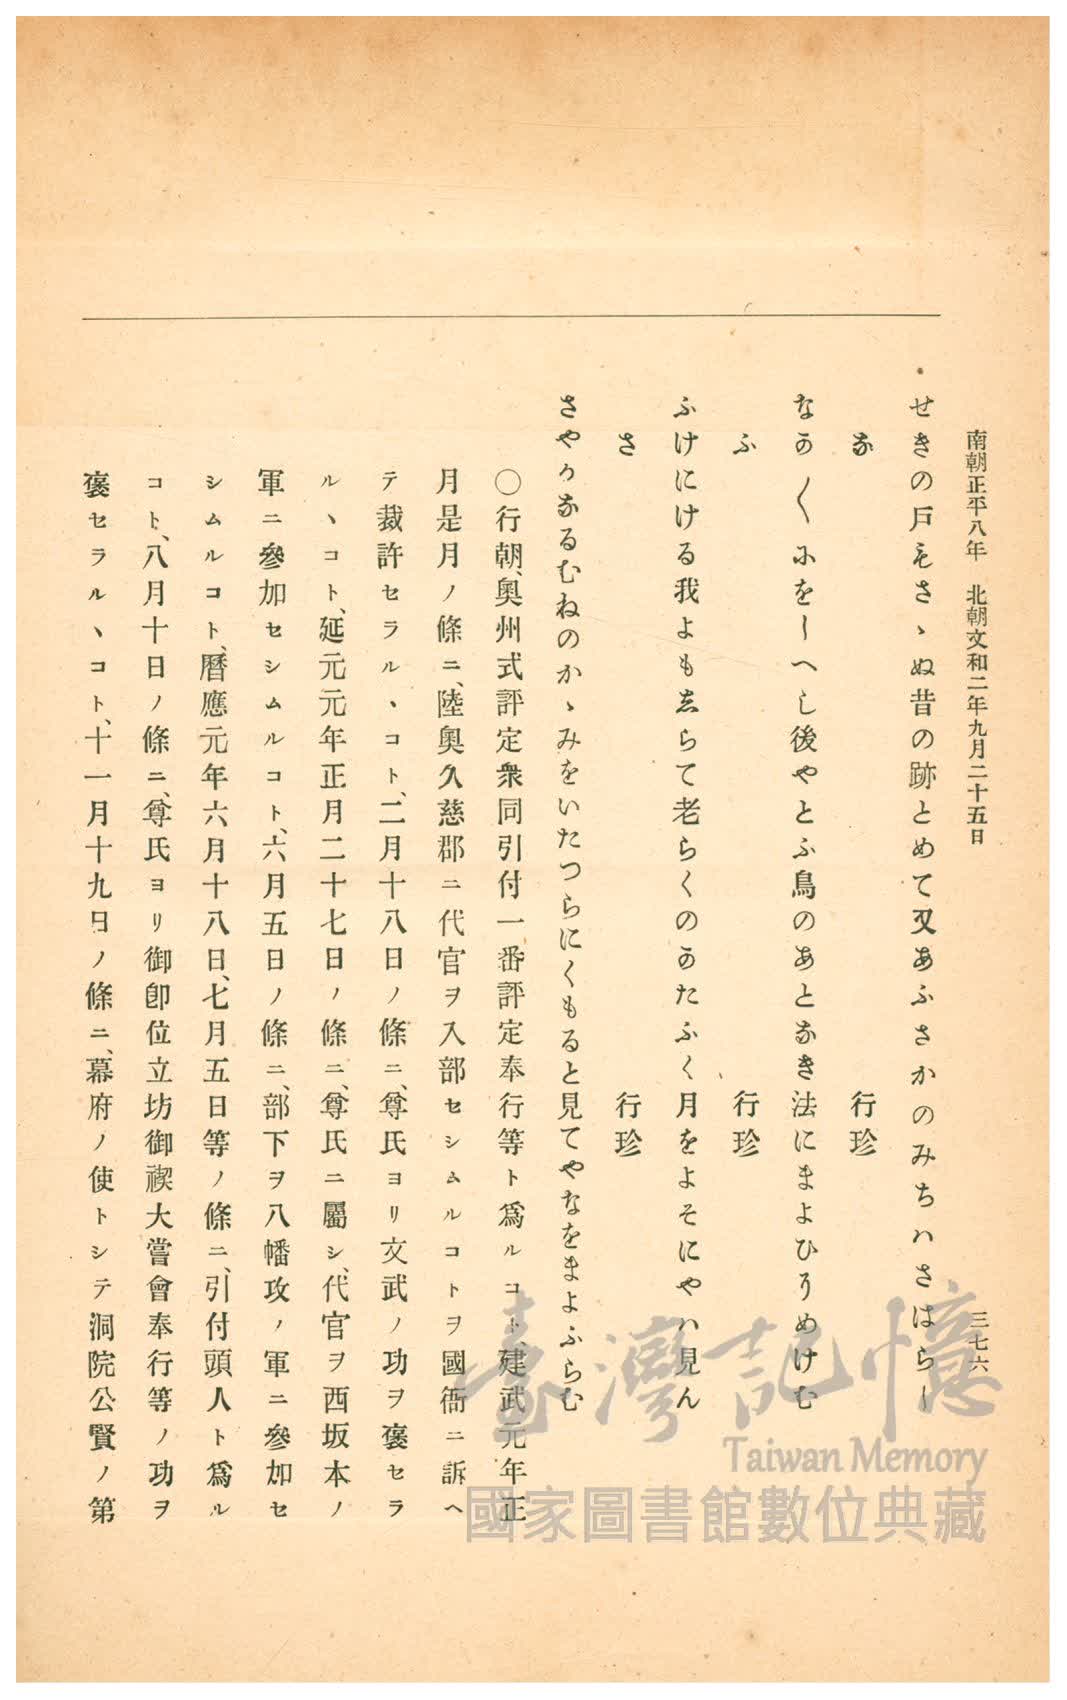 南朝正平八年　北朝文和二年九月二十五日　三七六
せきの戸もさゝぬ昔の跡とめて又あふさかのみちハさはらし
な　行珍
なか〳〵にをしへし後やとふ鳥のあとなき法にまよひそめけむ
ふ　行珍
ふけにける我よもしらて老らくのかたふく月をよそにやハ見ん
さ　行珍
さやかなるむねのかゝみをいたつらにくもると見てやなをまよふらむ
〇行朝、奧州式評定衆同引付一番評定奉行等ト爲ルコト、建武元年正
月是月ノ條ニ、陸奧久慈郡ニ代官ヲ入部セシムルコトヲ國衙ニ訴ヘ
テ裁許セラルヽコト、二月十八日ノ條ニ、尊氏ヨリ文武ノ功ヲ褒セラ
ルヽコト、延元元年正月二十七日ノ條ニ、尊氏ニ屬シ、代官ヲ西坂本ノ
軍ニ參加セシムルコト、六月五日ノ條ニ、部下ヲ八幡攻ノ軍ニ參加セ
シムルコト、曆應元年六月十八日、七月五日等ノ條ニ、引付頭人ト爲ル
コト、八月十日ノ條ニ、尊氏ヨリ御卽位立坊御禊大嘗會奉行等ノ功ヲ
褒セラルヽコト、十一月十九日ノ條ニ、幕府ノ使トシテ洞院公賢ノ第
臺灣記憶
Taiwan Memory
國家圖書館數位典藏